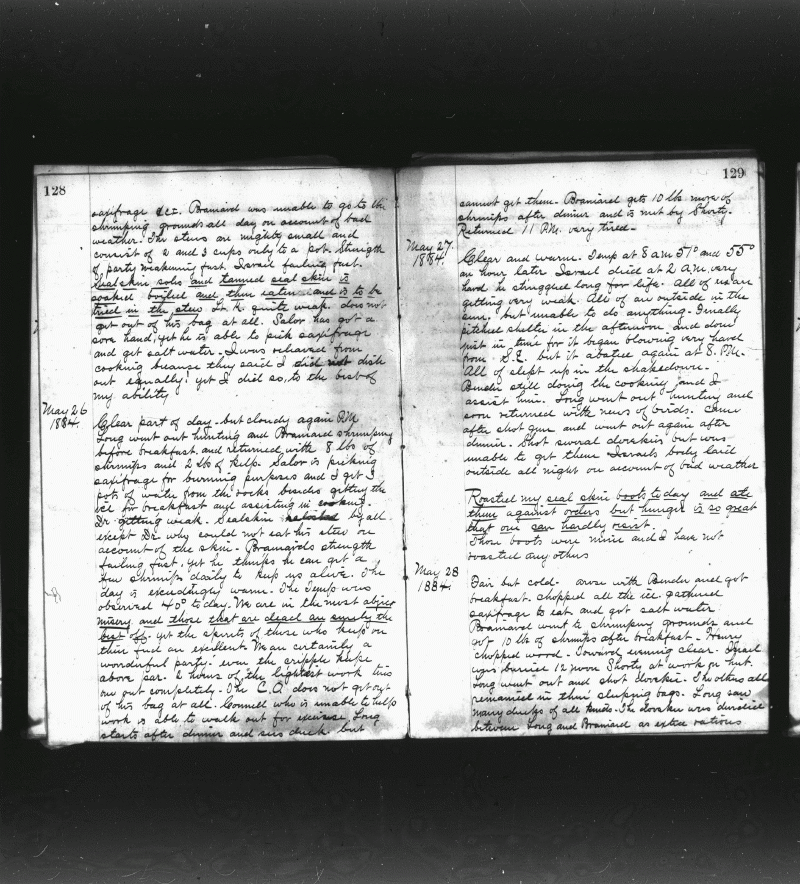 128
saxifrage &c. Brainard was unable to go to the
shrimping grounds all day on account of bad
weather. The stews are mighty small and
consist of 2 and 3 cups only to a pot. Strength
of party weakening fast. Israel failing fast.
Sealskin soles and tanned seal skin is
soaked boiled and then eaten and is to be
tried in the stew Dr. is quite weak does not
get out of his bag at all. Salor has got a
sore hand, yet he is able to pick saxifrage
and get salt water. I was relieved from
cooking because they said I did not dish
out equally! yet I did so, to the best of
my ability
May 26
1884.
Clear part of day but cloudy again P.M.
Long went out hunting and Brainard shrimping
before breakfast and returned with 8 lbs of
shrimps and 2 lbs of kelp. Salor is picking
saxifrage for burning purposes and I get 3
pots of water from the rocks besides getting the
ice for breakfast and assisting in cooking.
Dr. getting weak. Sealskin by all
except Dr. who could not eat his stew on
account of the skin. Brainard's strength
failing fast, yet he thinks he can get a
few shrimps daily to keep us alive. The
day is exceedingly warm. The temp was
observed 40° to day. We are in the most abject
misery and those that are dead are surely the
best off. yet the spirits of those who keep on
their feet are excellent. We are certainly a
wonderful party. even the cripple keeps
above par. 2 hours of the lightest work tires
me out completely. The C.O. does not get out
of his bag at all. Connell who is unable to help
work is able to walk out for exercise. Long
starts after dinner and sees duck but
129
cannot get them. Brainard gets 10 lbs more of
shrimps after dinner and is met by Shorty.
Returned 11 P.M. very tired.
May 27.
1884.
Clear and warm. Temp at 8 a.m 57° and 55°
an hour later Israel died at 2 A.M. very
hard he struggled long for life. All of us are
getting very weak. All of are outside in the
sun, but unable to do anything. Finally
pitched shelter in the afternoon and done
just in time for it began blowing very hard
from S.E. but it abated again at 8. P.M.
All of slept up in the shakedown.
Bender still doing the cooking and I
assist him. Long went out hunting and
soon returned with news of birds. Came
after shot gun and went out again after
dinner. Shot several dovekies but was
unable to get them Israels body laid
outside all night on account of bad weather
Roasted my seal skin boots to day and ate
them against orders but hunger is so great
that one can hardly resist.
Those boots were mine and I have not
roasted any others
May 28
1884.
Fair but cold. arose with Bender and got
breakfast. chopped all the ice gathered
saxifrage to eat and got salt water.
Brainard went to shrimping grounds and
got 10 lbs of shrimps after breakfast. Henry
chopped wood. Toward evening clear. Israel
was buried 12 noon Shorty at work on hut.
Long went out and shot dovekie. The others all
remained in their sleeping bags. Long saw
many ducks of all kinds. The dovekie was divided
between Long and Brainard as extra rations